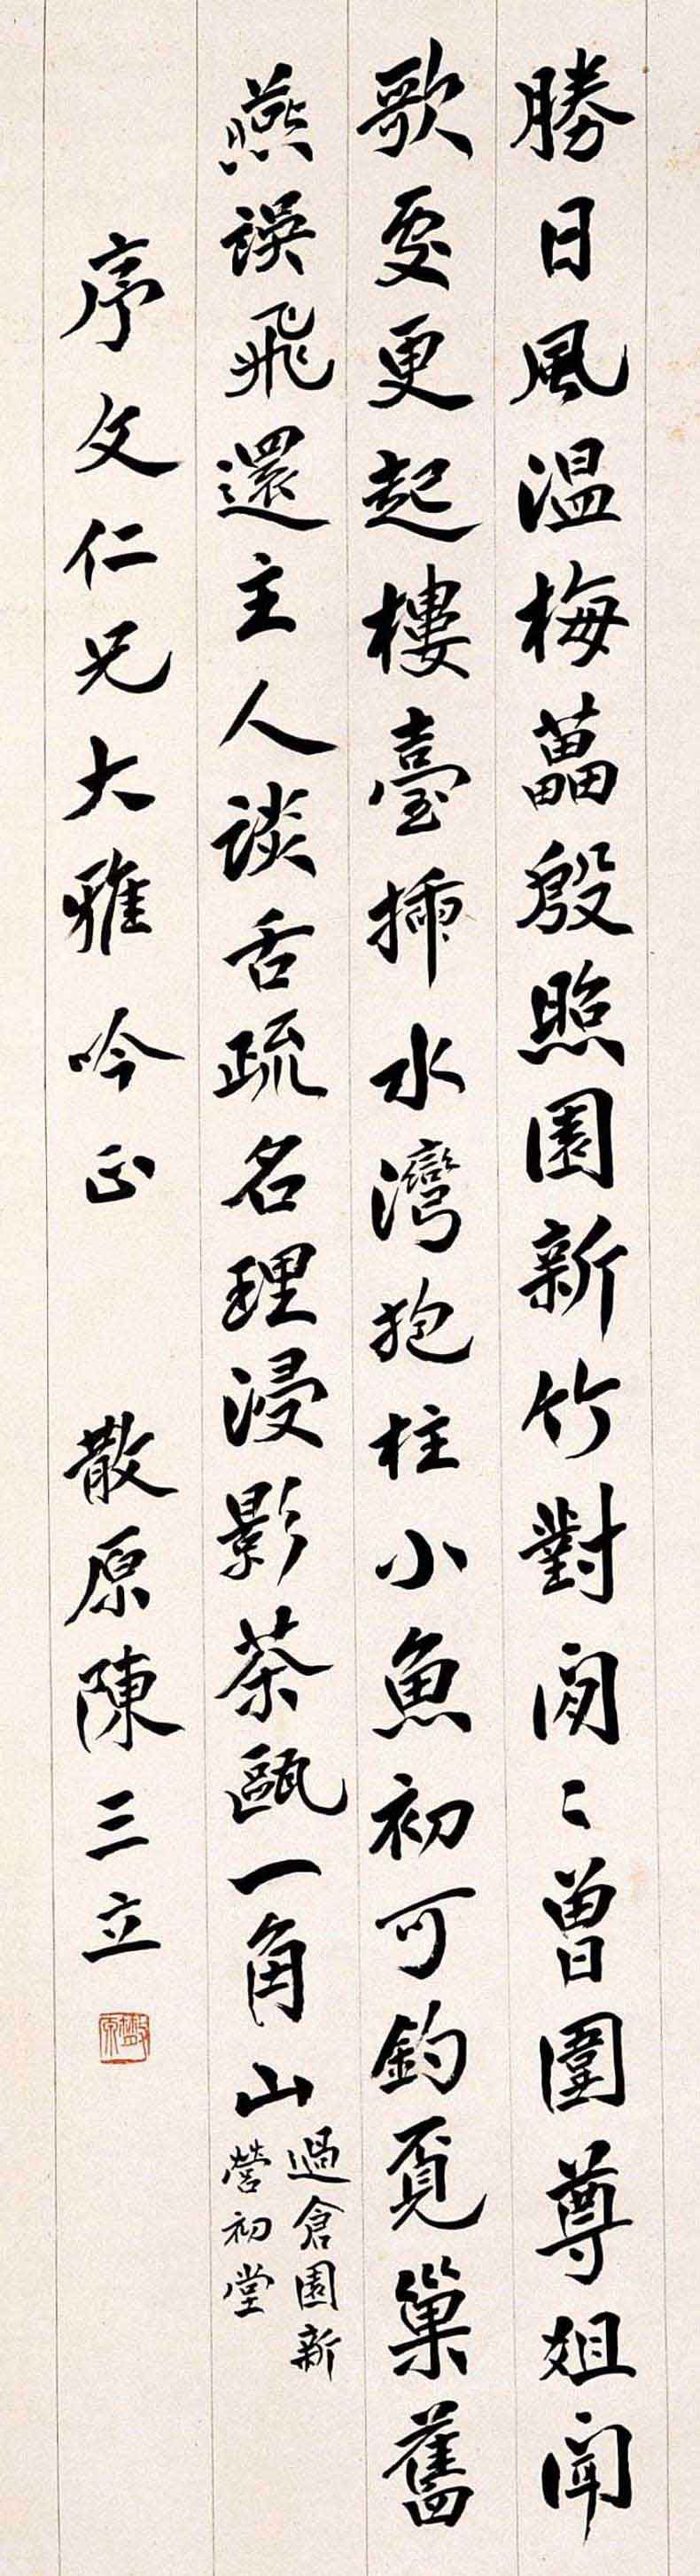 勝日風温梅蕌殷照園新竹對閒〻曾圍尊俎聞
歌處更起樓臺插水灣抱柱小魚初可釣覓巢舊
燕誤飛還主人談舌疏名理浸影茶甌一角山
過倉園新
營初堂
序文仁兄大雅吟正 散原陳三立
散原